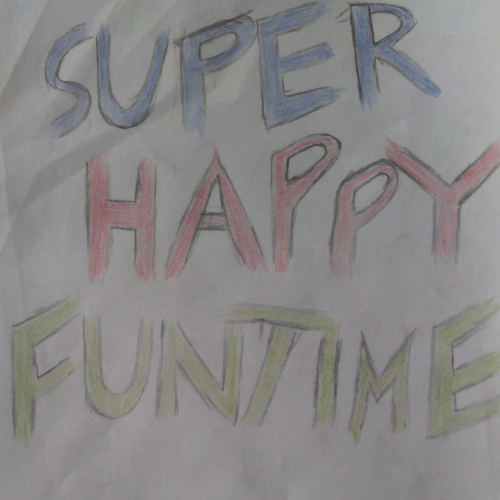 SUPER
HAPPY
FUNTIME